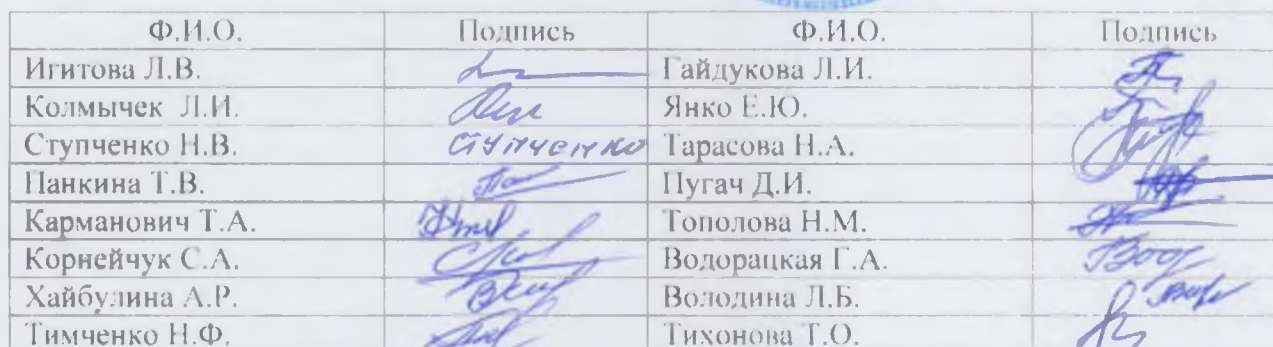 Ф.И.О. Подпись Ф.И.О. Подпись
Игитова Л.В. Гайдукова Л.И.
Колмычек Л.И. Янко Е.Ю.
Ступченко Н.В. Ступченко Тарасова Н.А.
Панкина Т.В. Пугач Д.И.
Карманович Т.А. Тополова Н.М.
Корнейчук С.А. Водорацкая Г.А.
Хайбулина А.Р. Володина Л.Б.
Тимченко Н.Ф. Тихонова Т.О.